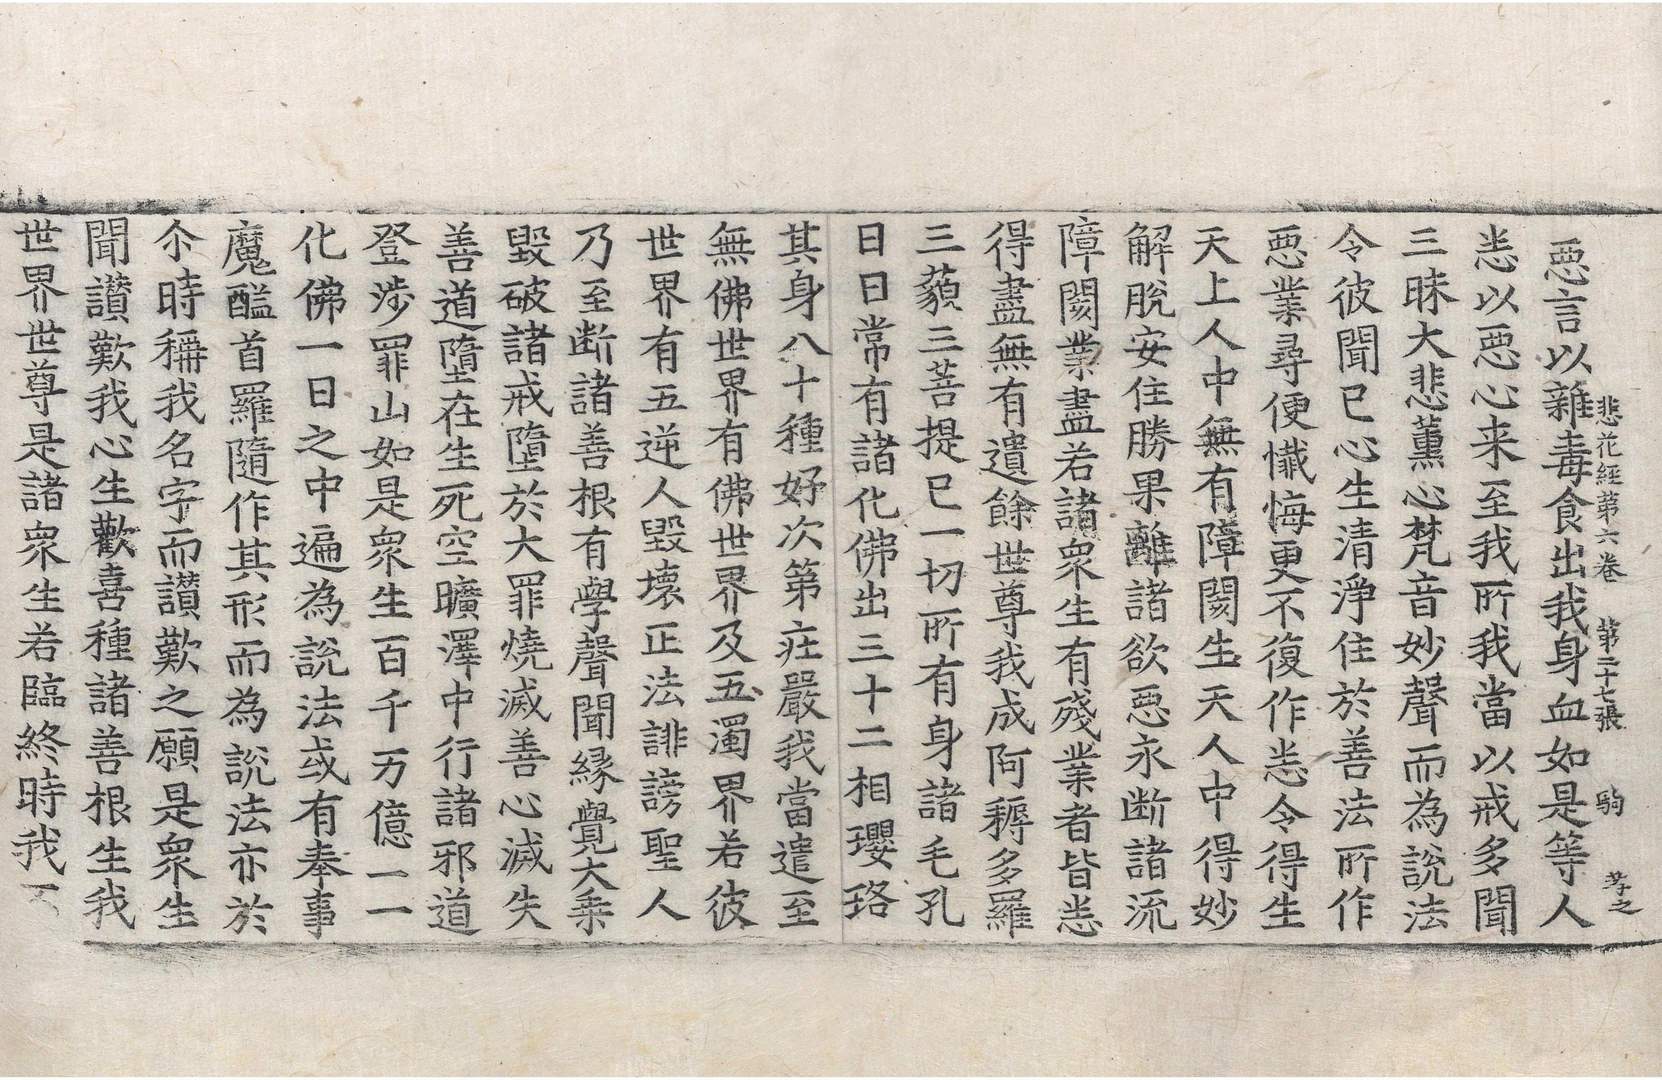 悲花経第六巻　第二十七張　騎　孝之
惡言以雜毒食出我身血如是等人
恙以惡心来至我所我當以戒多聞
三昧大悲薰心梵音妙聲而為說法
令彼聞已心生清淨住於善法所作
惡業尋便懺悔更不復作恙令得生
天上人中無有障閡生天人中得妙
解脫安住勝果離諸欲惡永断諸流
障閡業盡若諸衆生有殘業者皆恙
得盡無有遺餘世尊我成阿耨多羅
三藐三菩提已一切所有身諸毛孔
日日常有諸化佛出三十二相瓔珞
其身八十種好次第莊嚴我當遣至
無佛世界有佛世界及五濁界若彼
世界有五逆人毀壞正法誹謗聖人
乃至断諸善根有學聲聞緣覺大乗
毀破諸戒墮於大罪燒滅善心滅失
善道墮在生死空曠澤中行諸邪道
登涉罪山如是衆生百千万億一一
化佛一日之中遍為說法或有奉事
魔醯首羅隨作其形而為說法亦於
尒時稱我名字而讃歎之願是衆生
聞讃歎我心生歡喜種諸善根生我
世界世尊是諸衆生若臨終時我不